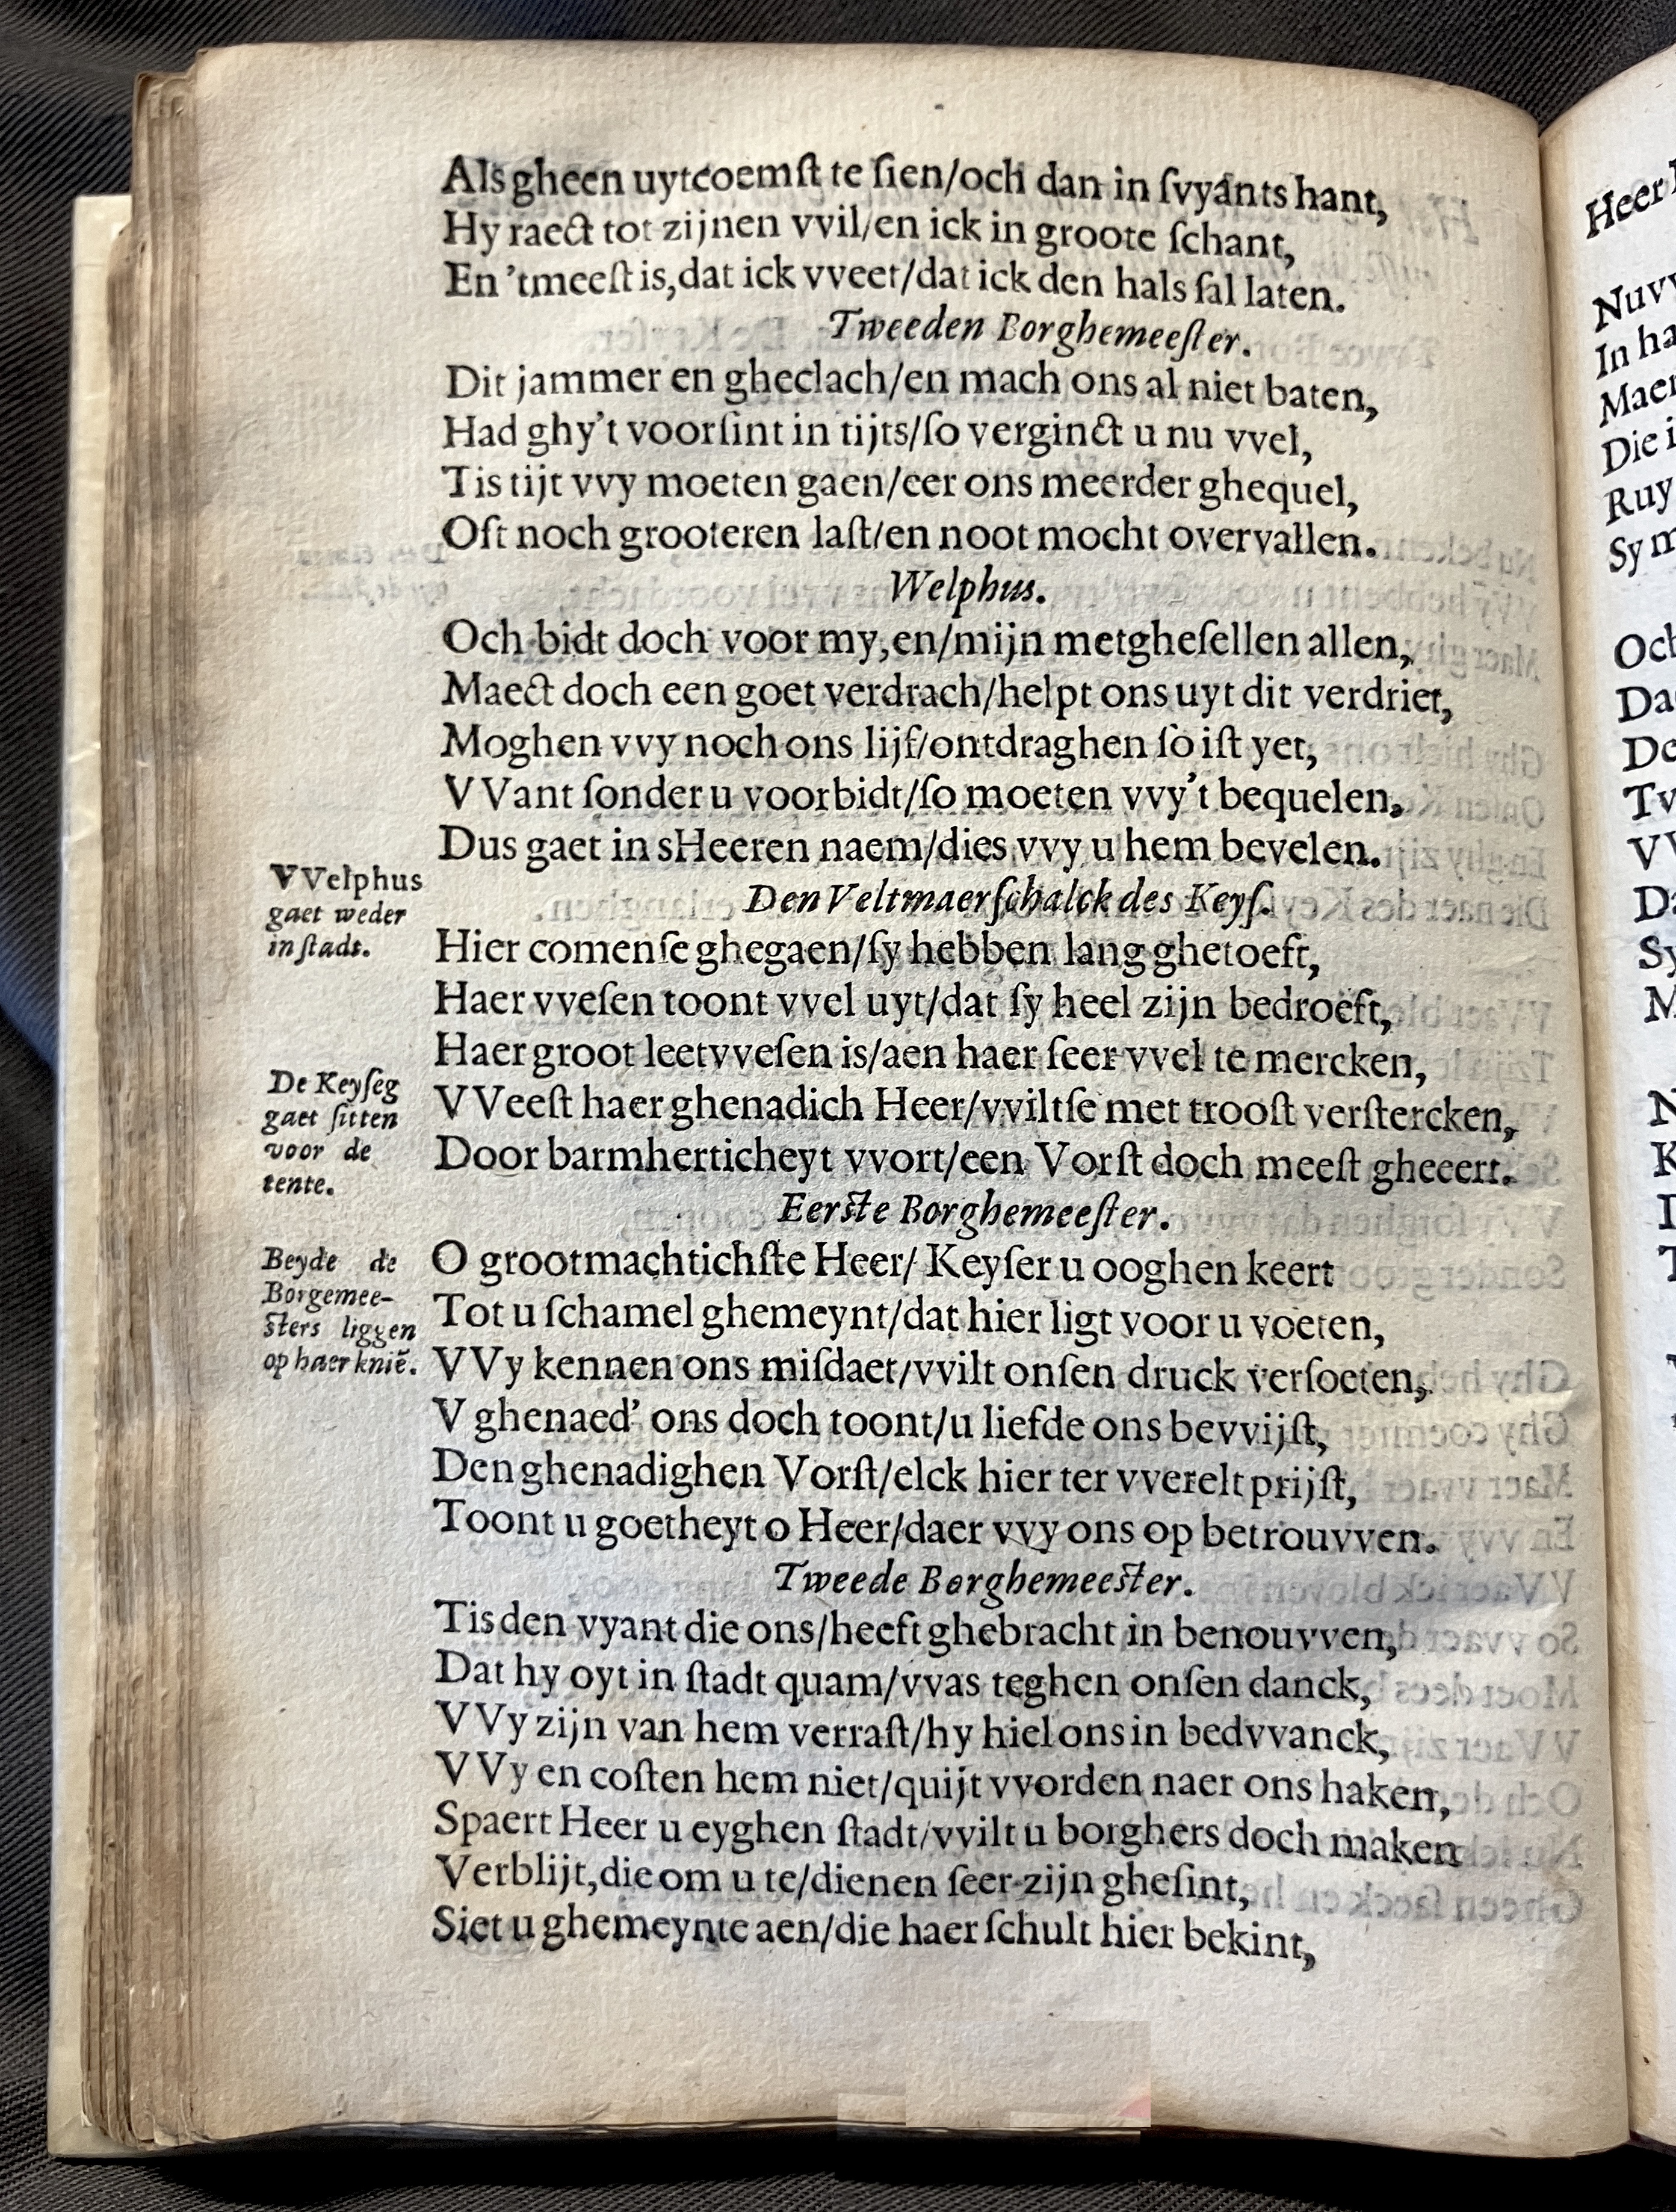 Als gheen uytcoemſt te ſien/och dan in ſvyants hant,
Hy raect tot zijnen vvil/en ick in groote ſchant,
En 'tmeeſt is,dat ick vveet/dat ick den hals ſal laten.
Tweeden Borghemeeſter.
Dit jammer en gheclach/en mach ons al niet baten,
Had ghy't voorſint in tijts/ſo verginct u nu vvel,
Tis tijt vvy moeten gaen/eer ons meerder ghequel,
Oft noch grooteren laſt/en noot mocht overvallen.
Welphus.
Och bidt doch voor my,en/mijn metgheſellen allen,
Maect doch een goet verdrach/helpt ons uyt dit verdriet,
Moghen vvy noch ons lijf/ontdraghen ſo iſt yet,
VVant ſonder u voorbidt/ſo moeten vvy't bequelen,
Dus gaet in sHeeren naem/dies vvy u hem bevelen.
VVelphus
gaet weder
in ſtadt.
Den Veltmaerſchalck des Keyſ.
Hier comenſe ghegaen/ſy hebben lang ghetoeft,
Haer vveſen toont vvel uyt/dat ſy heel zijn bedroeft,
Haer groot leetvveſen is/aen haer ſeer vvel te mercken,
De Keyſeg
gaet ſitten
voor de
tente.
VVeeſt haer ghenadich Heer/vviltſe met trooſt verſtercken,
Door barmherticheyt vvort/een Vorſt doch meeſt gheeert.
Eerſte Borghemeeſter.
Beyde de
Borgemee-
ſters liggen
op haer knië.
O grootmachtichſte Heer/ Keyſer u ooghen keert
Tot u ſchamel ghemeynt/dat hier ligt voor u voeten,
VVy kennen ons miſdaet/vvilt onſen druck verſoeten,
V ghenaed' ons doch toont/u liefde ons bevvijſt,
Den ghenadighen Vorſt/elck hier ter vverelt prijſt,
Toont u goetheyt o Heer/daer vvy ons op betrouvven.
Tweede Borghemeeſter.
Tis den vyant die ons/heeft ghebracht in benouvven,
Dat hy oyt in ſtadt quam/vvas teghen onſen danck,
VVy zijn van hem verraſt/hy hiel ons in bedvvanck,
VVy en coſten hem niet/quijt vvorden naer ons haken,
Spaert Heer u eyghen ſtadt/vvilt u borghers doch maken
Verblijt,die om u te/dienen ſeer zijn gheſint,
Siet u ghemeynte aen/die haer ſchult hier bekint,